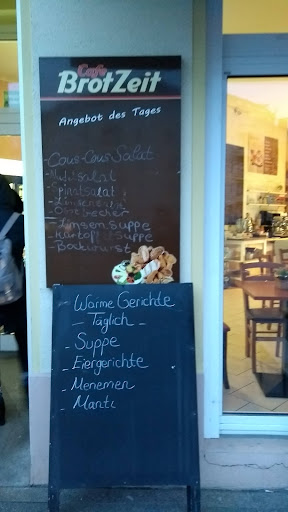 Cafe
BrotZeit
Angebot des Tages
- Cous-Cous Salat
- Nudelsalat
- Spinatsalat
- Obstbecher
- Linsen Suppe
- Kartoff Suppe
- Bockwurst
- Warme Gerichte
- Täglich -
- Suppe
- Eiergerichte
- Menemen
- Mantı